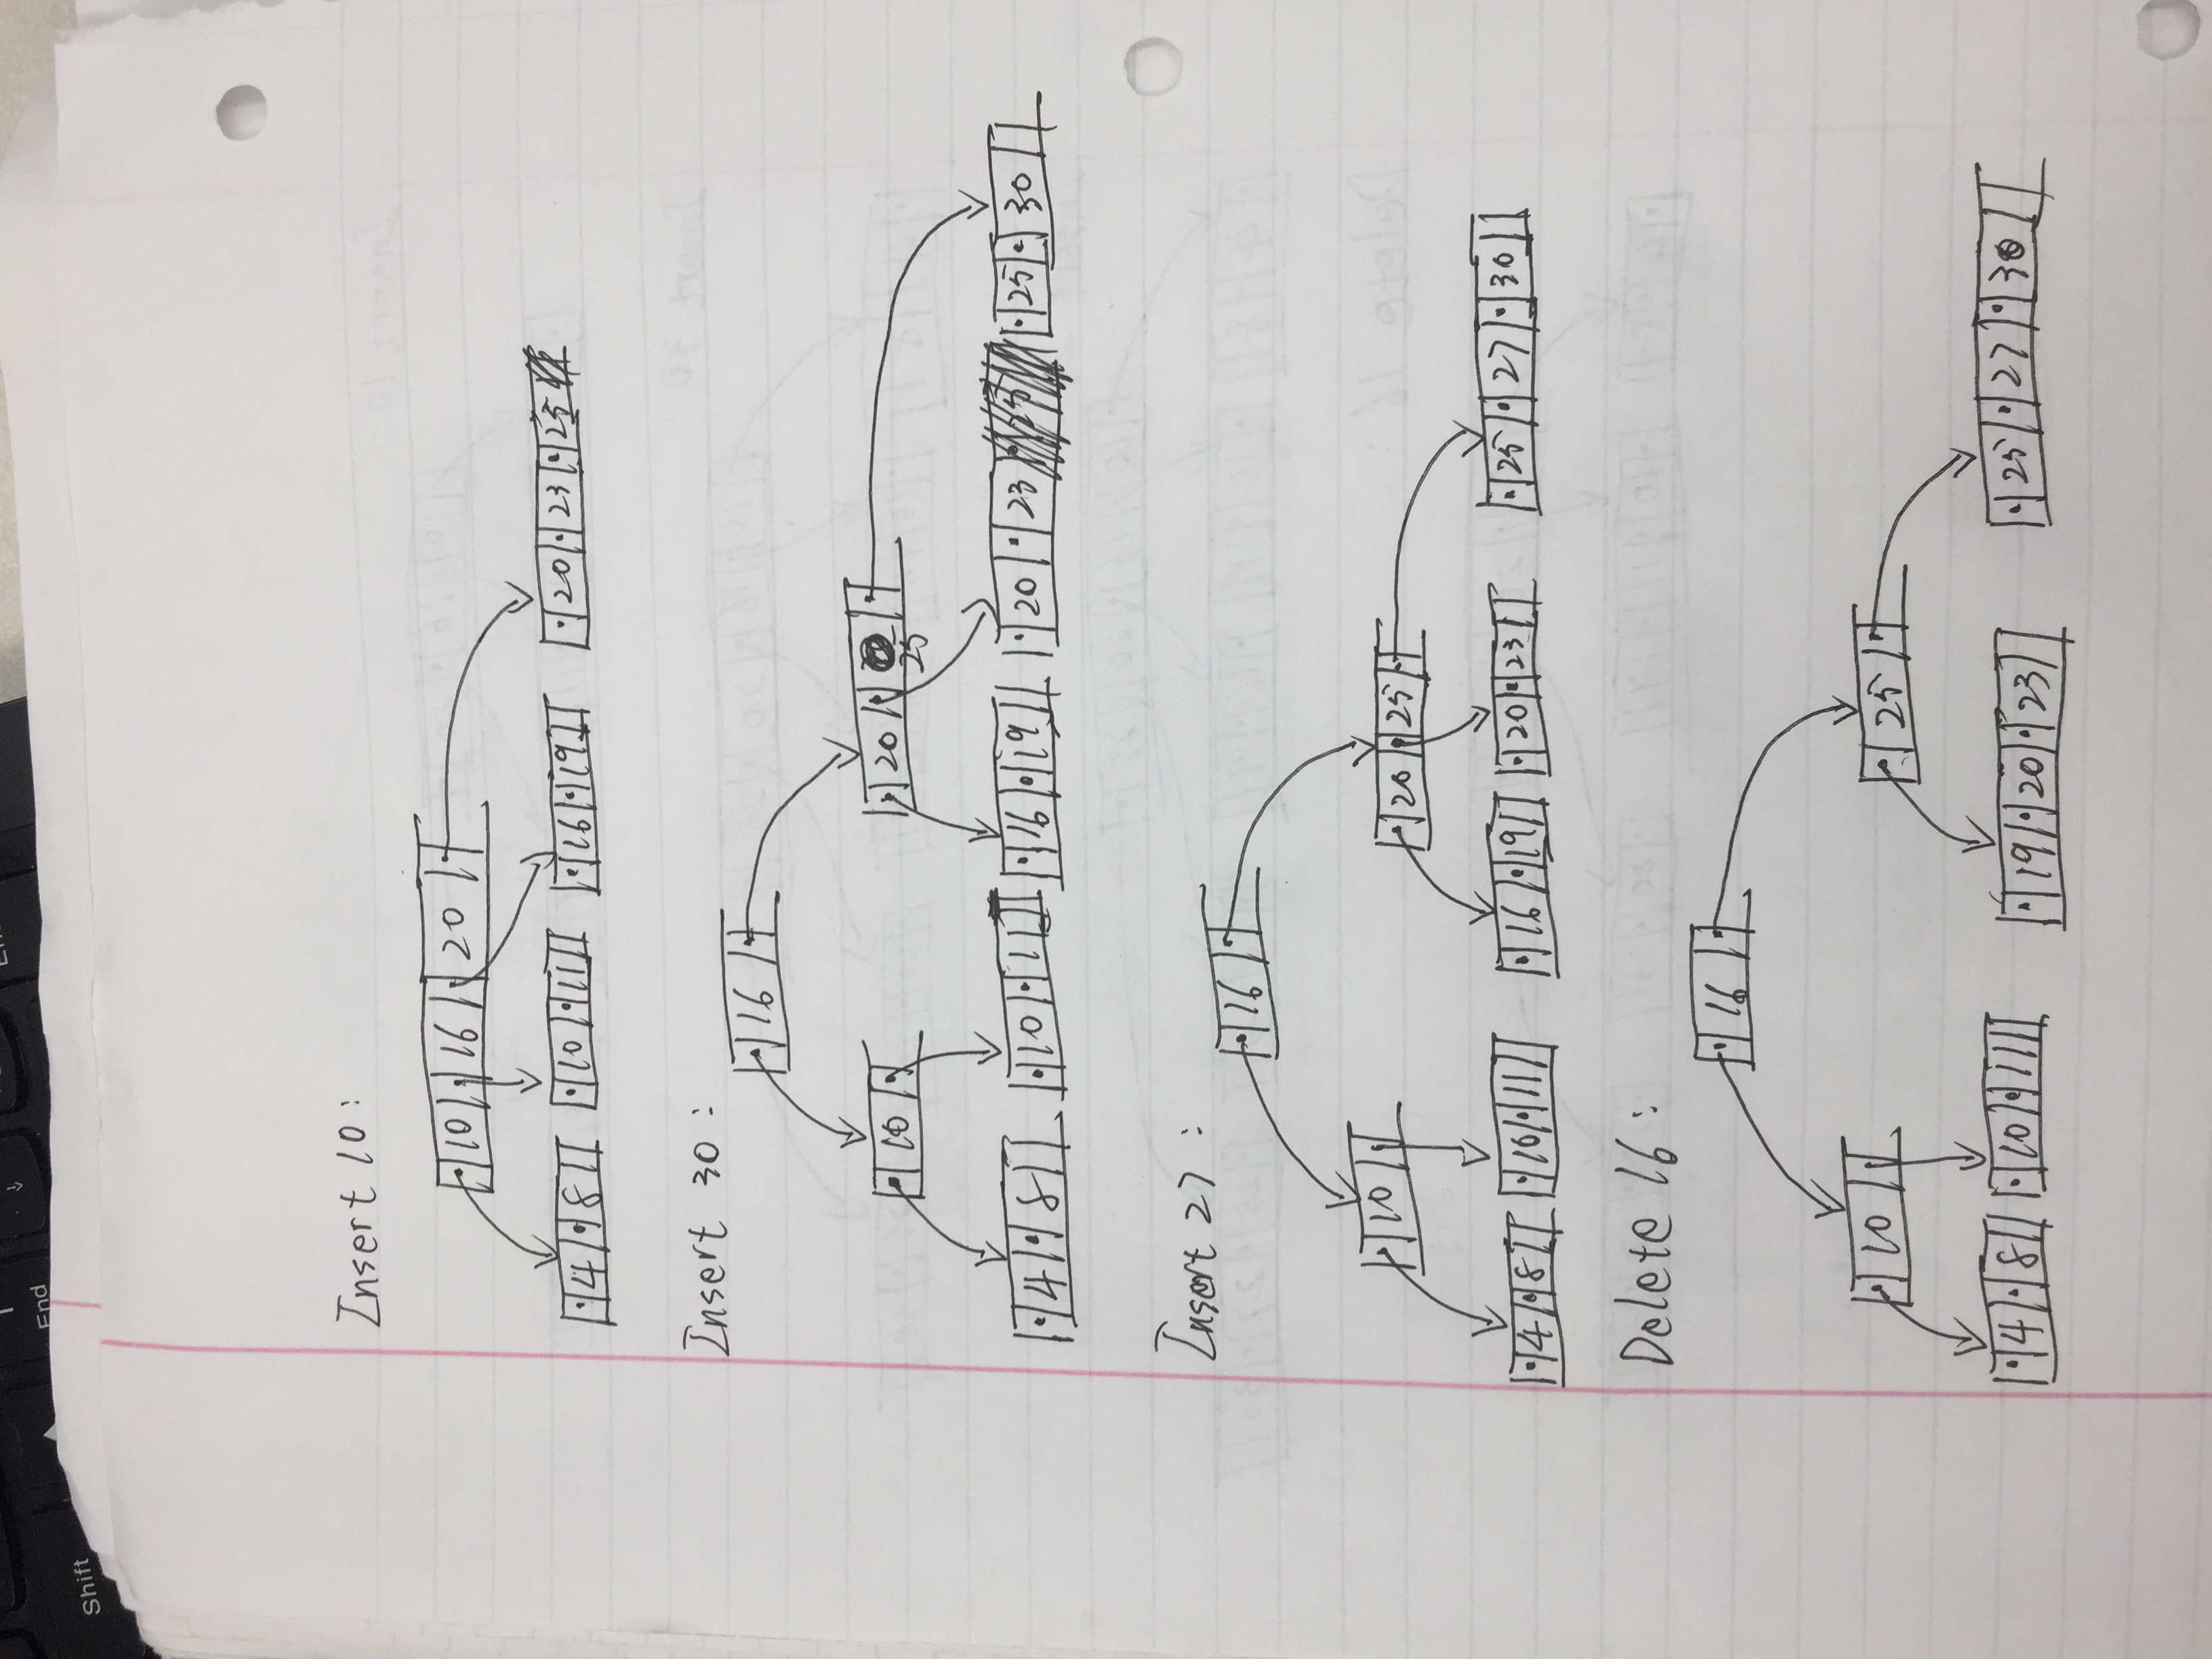 Shift
End
Insert 10:
10 16 20
4 8 10 11 16 19 20 23 25
Insert 30:
16
10 20
25
4 8 10 11 16 19 20 23 25 30
Insert 27:
16
10 20 25
4 8 10 11 16 19 20 23 25 27 30
Delete 16:
16
10 25
4 8 10 11 19 20 23 25 27 30